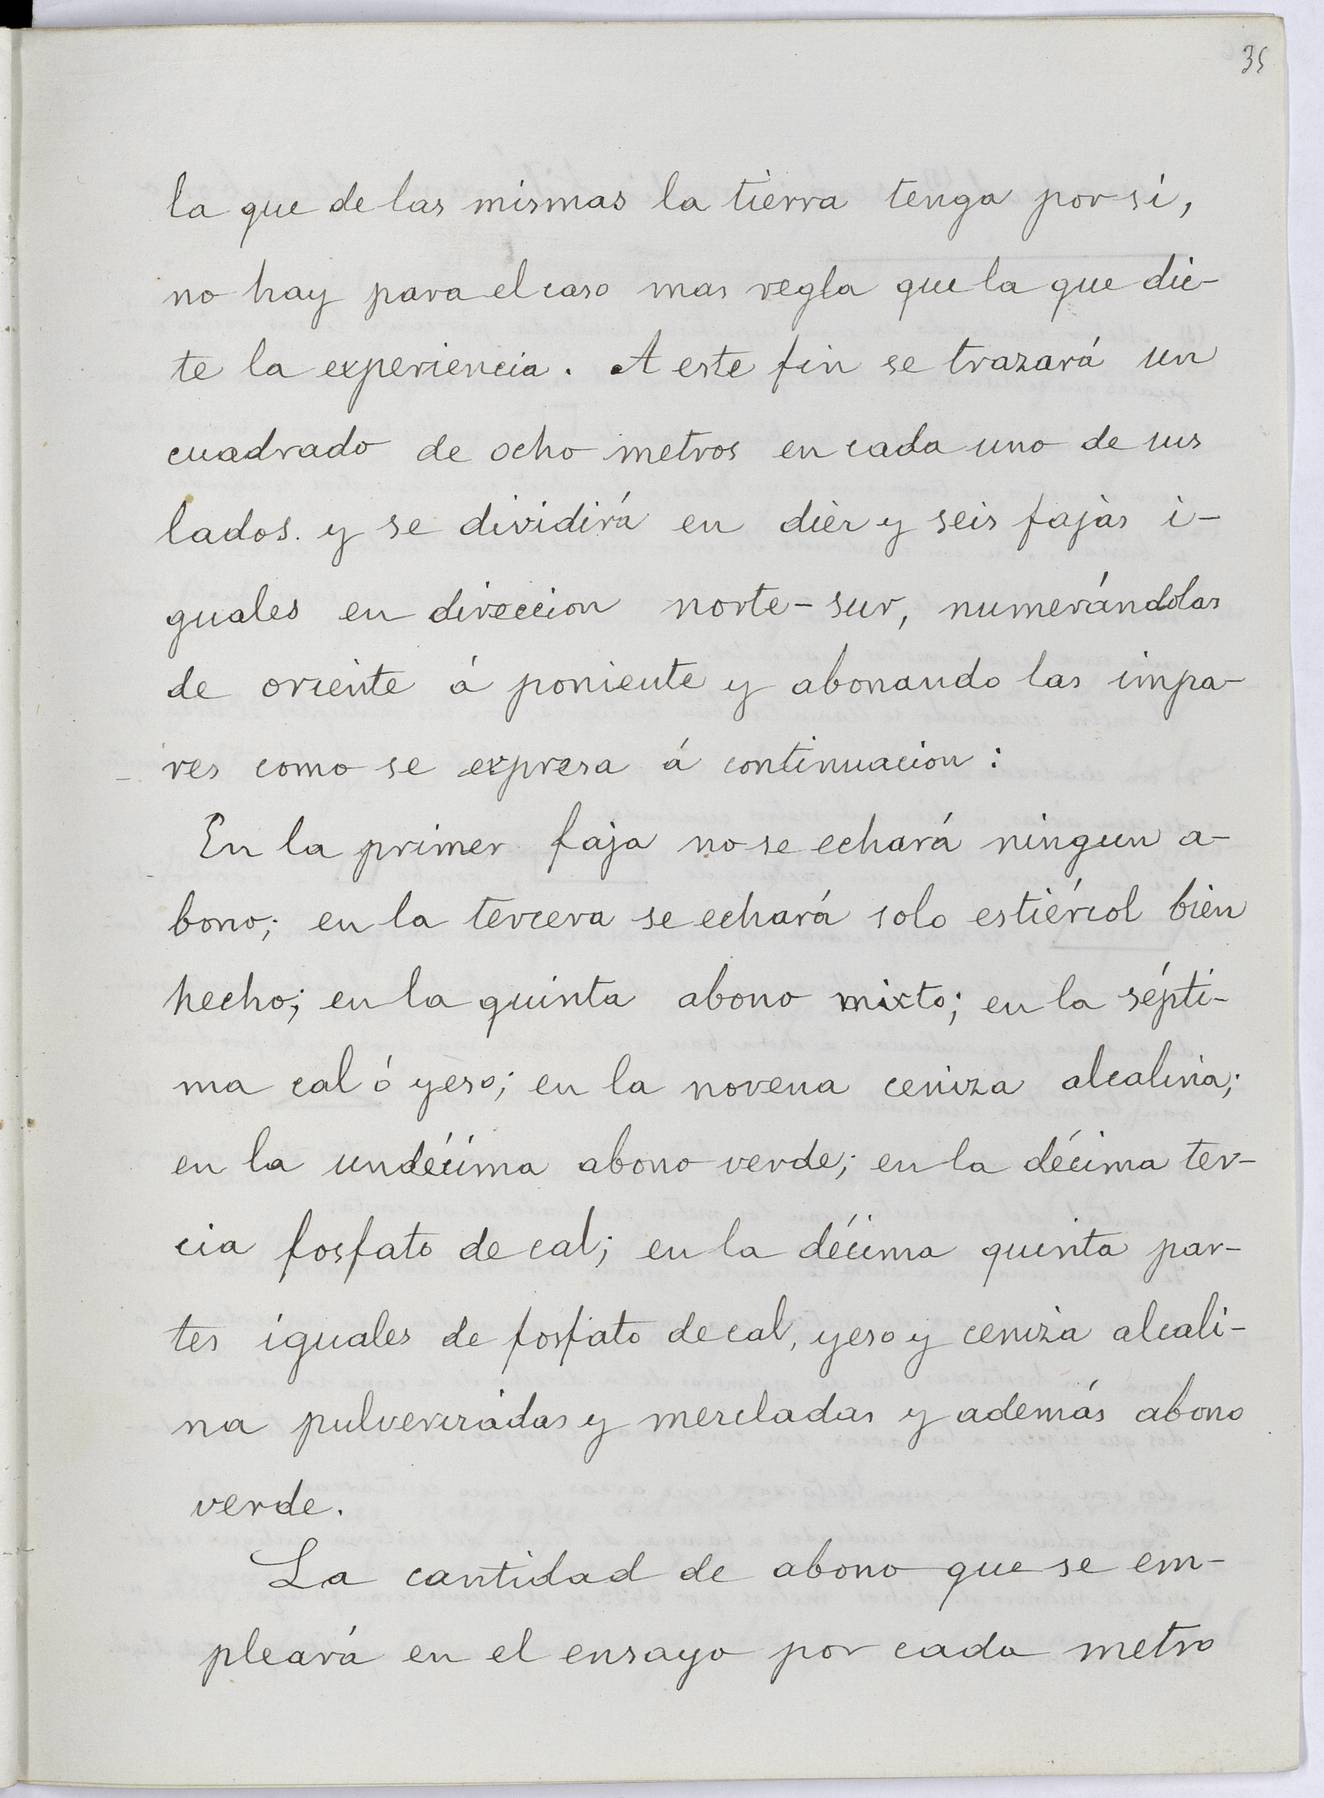 35
la que de las mismas la tierra tenga por si,
no hay para el caso mas regla que la que dic-
te la experiencia. A este fin se trazará un
cuadrado de ocho metros en cada uno de sus
lados. y se dividirá en diez y seis fajas i-
guales en direccion norte-sur, numerándolas
de oriente á poniente y abonando las impa-
res como se expresa á continuacion:
En la primer faja no se echará ningun a-
bono; en la tercera se echará solo estiércol bien
hecho; en la quinta abono mixto; en la sépti-
ma cal ó yeso; en la novena ceniza alcalina;
en la undécima abono verde; en la décima ter-
cia fosfato de cal; en la décima quinta par-
tes iguales de fosfato de cal, yeso y ceniza alcali-
na pulverizadas y mezcladas y además abono
verde.
La cantidad de abono que se em-
pleará en el ensayo por cada metro